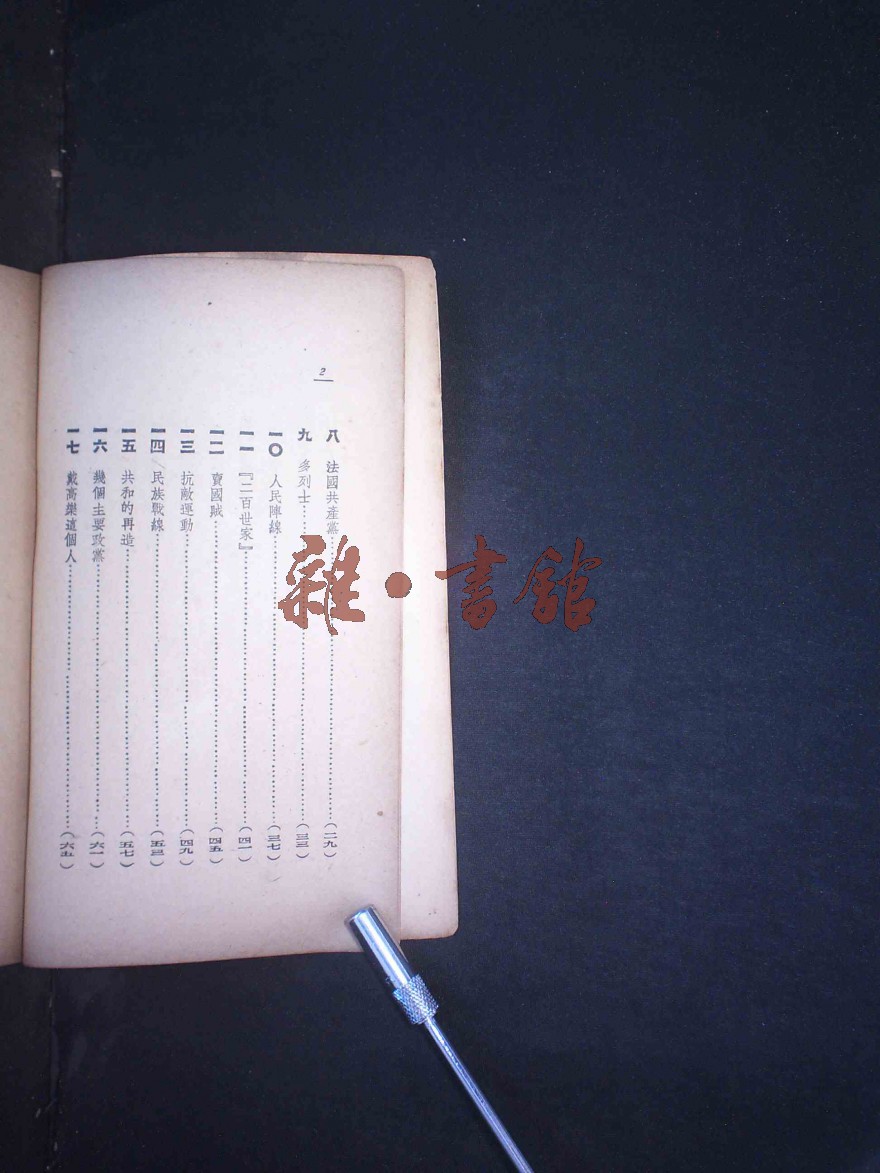 2
八 法國共產黨……(二九)
九 多列士……(三三)
一〇 人民陣線……(三七)
一一 『二百世家』……(四一)
一二 賣國賊……(四五)
一三 抗敵運動……(四九)
一四 民族戰線……(五三)
一五 共和的再造……(五七)
一六 幾個主要政黨……(六一)
一七 戴高樂這個人……(六五)
雜·書館